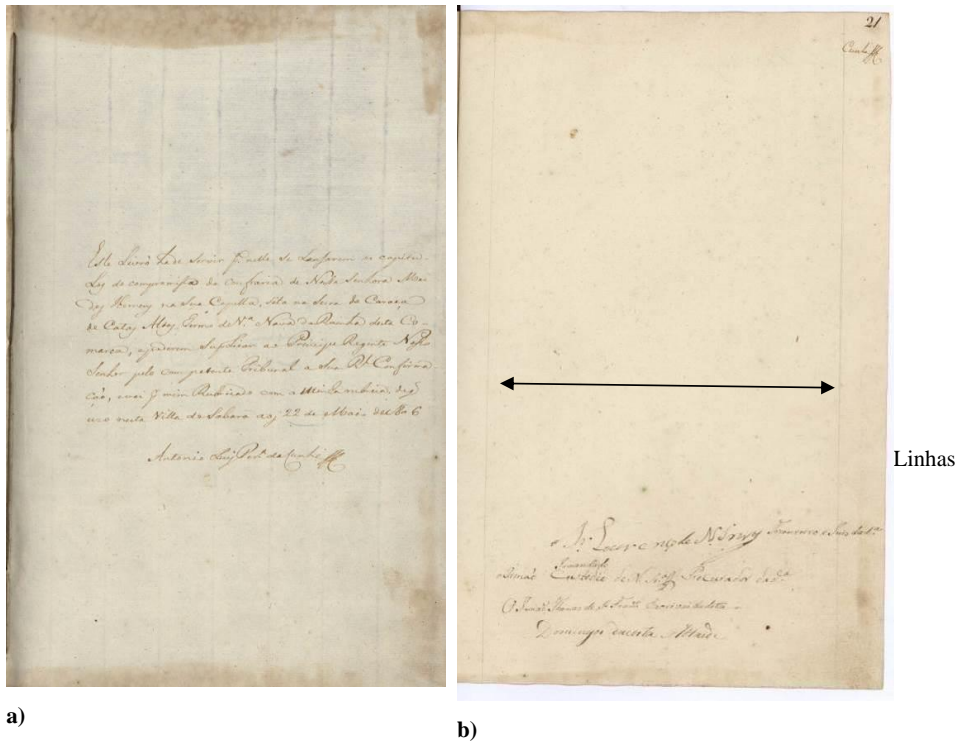 Este Livro ha de servir p.ª nelle se Lansarem os capitu-
los do compromisso da confraria de Nossa Senhora Mai
dos Homens na sua Capella, sita na Serra do Caraça
de Catas Altas, Termo de V.ª Nova da Rainha desta Co-
marca, Suplicar ao Principe Regente Nosso
Senhor pelo competente Tribunal a Sua R.l Confirma
ção, Rubricado com a minha rubrica de q̃
uzo nesta Villa do Sabará aos 22 de Maio de 1806
Antonio Luiz Per.ª da Cunha
a)
21
Cunha
Linhas
Lourenço de N. Snrª Thezoureiro e
Irmão Custodio de N. Procurador
O Irmão Thomas de
Domingos da Costa
b)